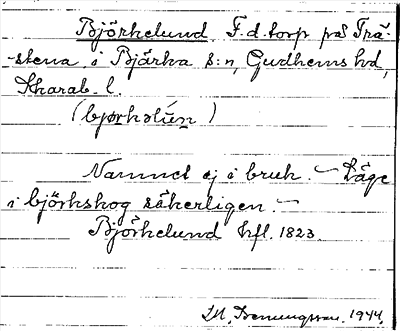 Björkelund F. d. torp på Trä-
-stena i Bjärka s:n, Gudhems hd,
Skarab. l.
Namnet ej i bruk. – Läge
i björkskog säkerligen. –
Björkelund hfl. 1823
1944.